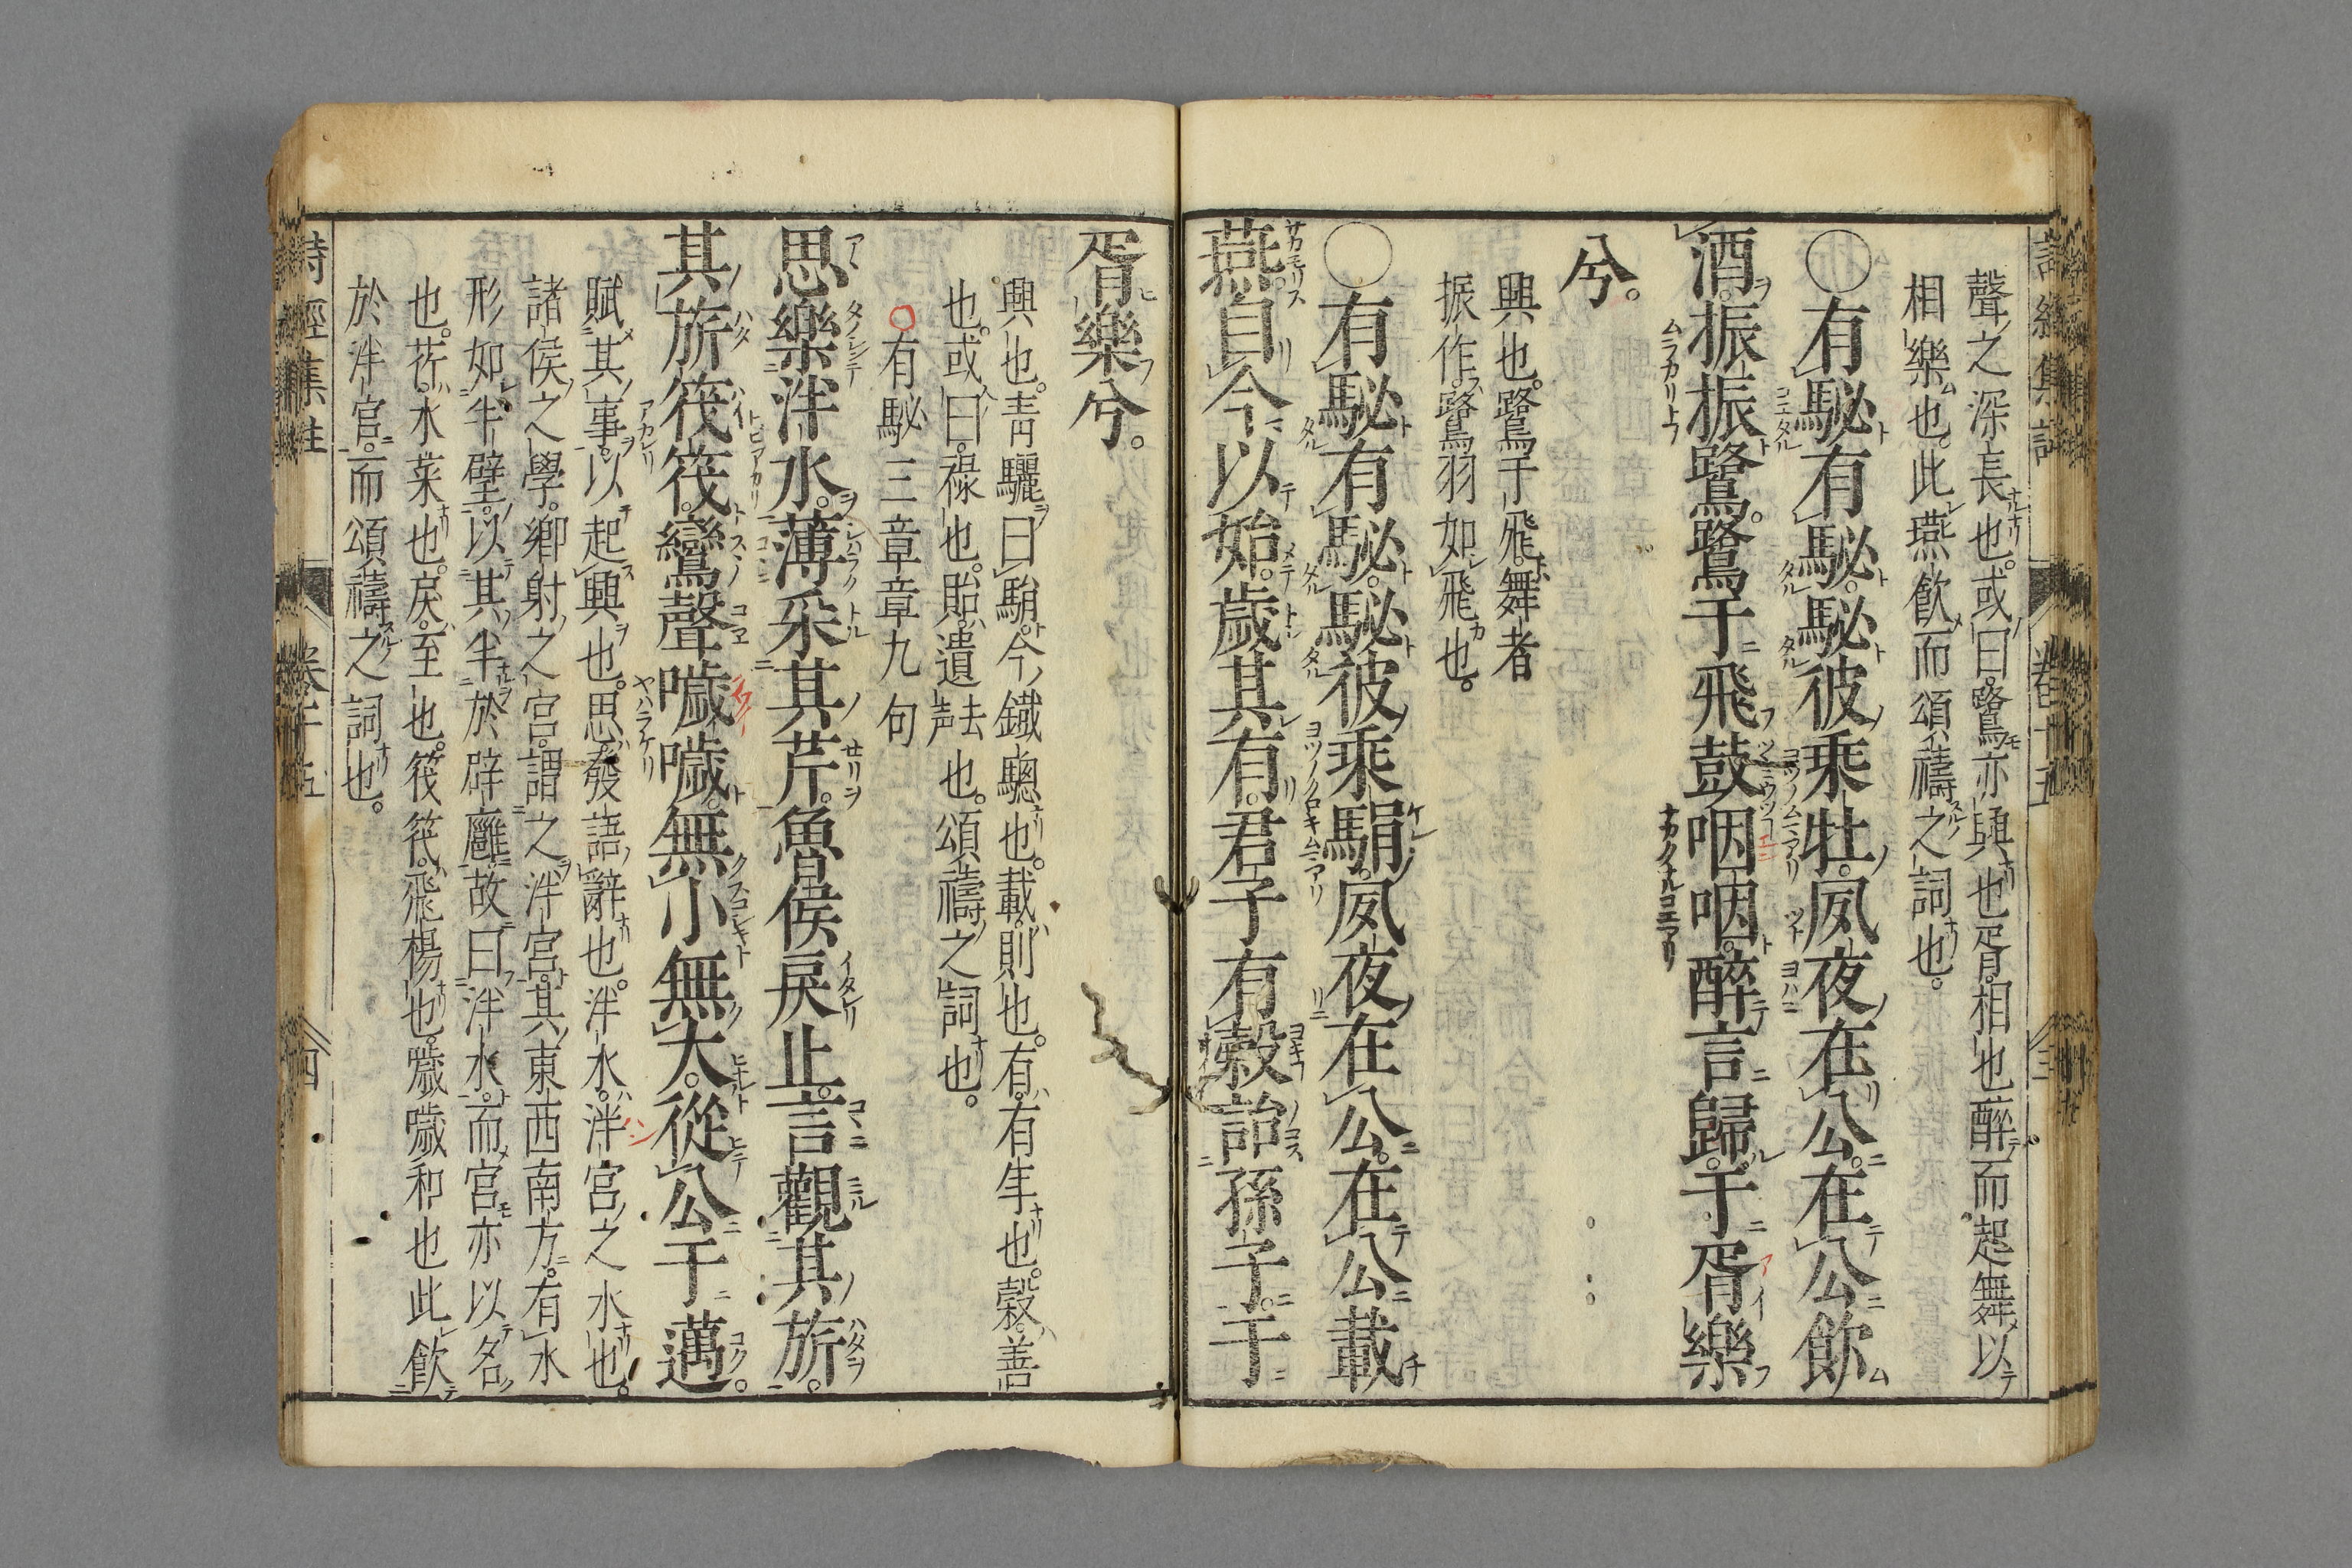 聲之深長也。或曰。鷺亦興也。胥。相也。醉而起舞。以
相樂也。此燕飲而頌禱之詞也。
○有駜有駜。駜彼乘牡。夙夜在公。在公飲
酒。振振鷺。鷺于飛。鼓咽咽。醉言歸。于胥樂
兮。
興也。鷺于飛。舞者
振作。鷺羽如飛也。
○有駜有駜。駜彼乘駽。夙夜在公。在公載
燕。自今以始。歲其有。君子有穀。詒孫子。于
胥樂兮。
興也。青驪曰駽。今鐵驄也。載。則也。有。有年也。穀。善
也。或曰。祿也。貽。遺去聲也。頌禱之詞也。
有駜三章章九句
思樂泮水。薄采其芹。魯侯戾止。言觀其旂。
其旂筏筏。鸞聲噦噦。無小無大。從公于邁。
賦其事。以起興也。思。發語辭也。泮水。泮宮之水也。
諸侯之學。鄉射之宮。謂之泮宮。其東西南方。有水
形如半璧。以其半於辟廱。故曰泮水。而宮亦以名
也。芹。水菜也。戾。至也。筏筏。飛揚也。噦噦和也此飲
於泮宮。而頌禱之詞也。
詩經集註 卷十五 四